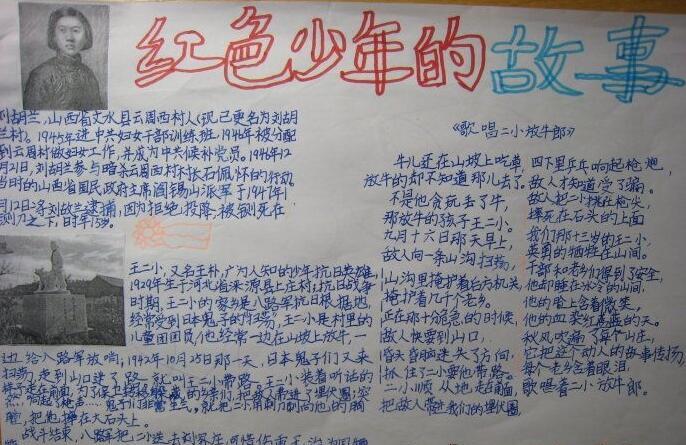 红色少年的故事
刘胡兰，山西省文水县云周西村人(现已更名为刘胡
兰村)。1945年进中共妇女干部训练班，1946年被分配
到云周村做妇女工作，并成为中共候补党员。1946年12
月21日，刘胡兰参与暗杀云周西村村长石佩怀的行动。
当时的山西省国民政府主席阎锡山派军于1947年1
月12日将刘故兰逮捕，因为拒绝投降，被铡死在
铡刀之下，时年15岁。
王二小，又名王朴，广为人知的少年抗日英雄，
1929年生于河北省涞源县上庄村，抗日战争
时期，王二小的家乡是八路军抗日根据地，
经常受到日本鬼子的"扫荡"，王二小是村里的
儿童团团员，他经常一边在山坡上放牛，一
边给八路军放哨，1942年10月25日那一天，日本鬼子们又来
扫荡，走到山口迷了路，就叫王二小带路。王二小装着听话的
样子走在前面，为了保卫
战斗结束，八路军把二小
《歌唱二小放牛郎》
牛儿还在山坡上吃草，
放牛的却不知道那儿去了。
不是他贪玩丢了牛，
那放牛的孩子王二小。
九月十六日那天早上，
敌人向一条山沟扫荡，
山沟里掩护着后方机关，
掩护着几千老乡。
正在那十分危急的时候，
敌人快要到山口，
昏头昏脑迷失了方向，
抓住了二小要他带路。
二小顺从地走在前面，
把敌人带进我们的埋伏圈，
四下里乒乓响起枪炮，
敌人才知道受了骗。
敌人把二小挑在枪尖，
摔死在石头的上面
我们那十三岁的王二小，
英勇的牺牲在山间。
干部和老乡们得到了安全，
他却睡在冰冷的山间，
他的脸上含着微笑，
他的血染红蓝蓝的天。
秋风吹遍了每个山庄，
它把这个动人的故事传扬，
每个老乡含着眼泪，
歌唱着二小放牛郎。